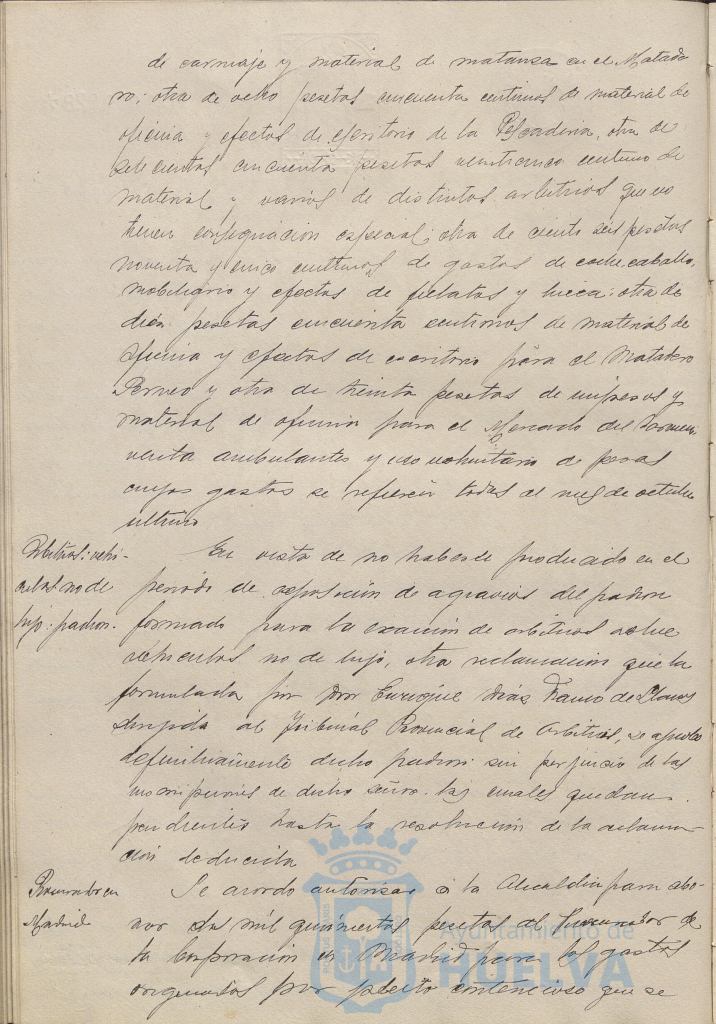 de carruaje y material de matanza en el Matade
ro; otra de ocho pesetas cincuenta centimos de material de
oficina y efectos de escritorio de la Pescaderia, otra de
setecientas cincuenta pesetas veinticinco centimos de
material y varios de distintos arbitrios que no
tienen consignacion especial; otra de ciento seis pesetas
noventa y cinco centimos de gastos de coche, caballo,
mobiliario y efectos de fielatos y otra de
diez pesetas cincuenta centimos de material de
oficina y efectos de escritorio para el Matadero
y otra de treinta pesetas de impresos y
material de oficina para el Mercado del
venta ambulantes y uso voluntario de pesas
cuyos gastos se refieren todas al mes de octubre
ultimo
Arbitrios: vehi-
culos no de
lujo: padron.
En vista de no haberse producido en el
periodo de exposición de agravios del padron
formado para la exacción de arbitrios sobre
vehiculos no de lujo, otra reclamacion que la
formulada por Don Enrique Díaz Franco de Llanos
dirigida al Tribunal Provincial de Arbitrios, se aprobo
definitivamente dicho padron sin perjuicio de las
inscripciones de dicho señor las cuales quedan
pendientes hasta la resolucion de la reclama-
ción deducida
Procurador en
Madrid
Se acordo autorizar á la Alcaldia para abo-
nar dos mil quinientas pesetas al Procurador de
la Corporación en Madrid para los gastos
originados por pleito contencioso que se
Ayuntamiento de
HUELVA